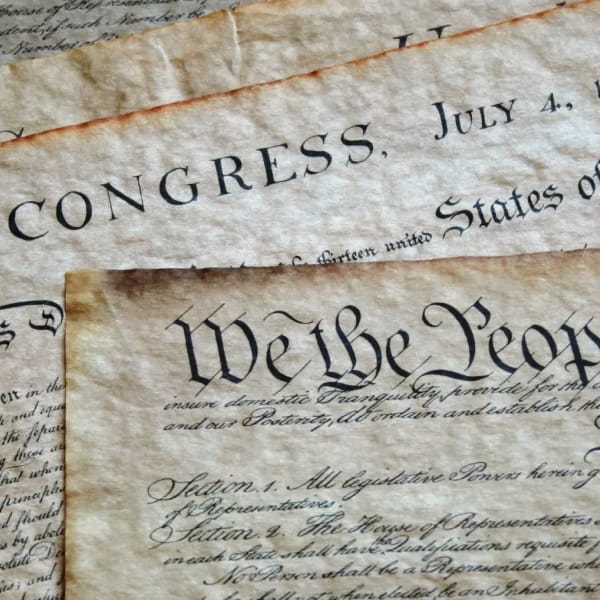 House of Representatives
Number of
CONGRESS, JULY 4.,
thirteen united States of
We the Peop
insure domestic Tranquility, provide for the
and our Posterity, do ordain and establish
Section. 1. All legislative Powers herein
of Representatives.
Section 2. The House of Representatives
in each State shall have the Qualifications requisite
No Person shall be a Representative who
shall not, when elected, be an Inhabitant
in the
and equ
the separa
these
that when
principles
should
by abol